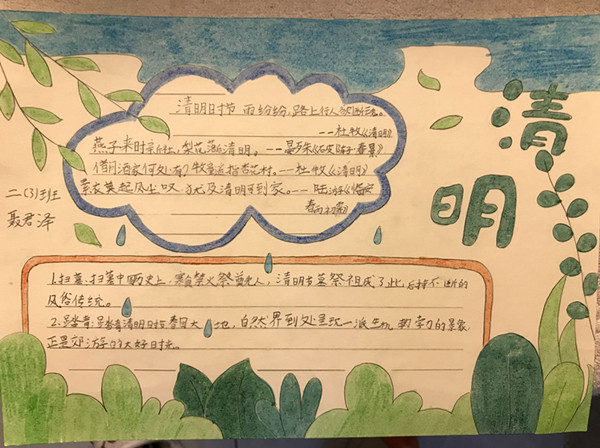 清明
二(3)班
聂君泽
清明日时节 雨纷纷,路上行人
--杜牧《清明》
燕子来时新社,梨花落清明。--晏殊《破阵子·春景》
借问酒家何处有?牧童遥指杏花村。--杜牧《清明》
素衣莫起风尘叹,犹及清明可到家。--陆游《临安
春雨初霁》
1.扫墓:扫墓中国历史上,寒食禁火祭先人,清明 祭祖成了此后 不断的
风俗传统。
2.踏青:清明日时春回大地,自然界到处呈现一派生机 的景象,
正是郊游的大好时光。